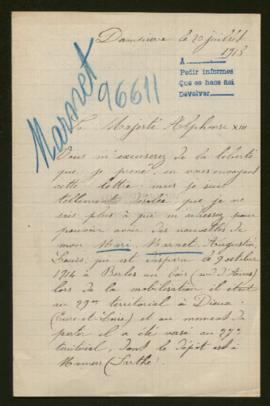 Dampierre le 20 juillet
1918
A
Pedir informes
Que se haga Así
Devolver
Marnet
96611
Sa Majesté Alphonse XIII
Vous m'excuserez de la liberté
que je prend, en vous envoyant
cette lettre mais je suis
tellement désolée que je ne
sais plus à qui m'adresser pour
pouvoir avoir des nouvelles de
mon Mari Marnet Augustin,
Louis, qui est disparu le 9 octobre
1914 à Berles au Bois
lors de la mobilisation il était
au 29me territorial à Dreux
(Eure et Loire) et au moment de
partir il a été versé au 27me
territorial, dont le dépôt est à
Mamers (Sarthe)